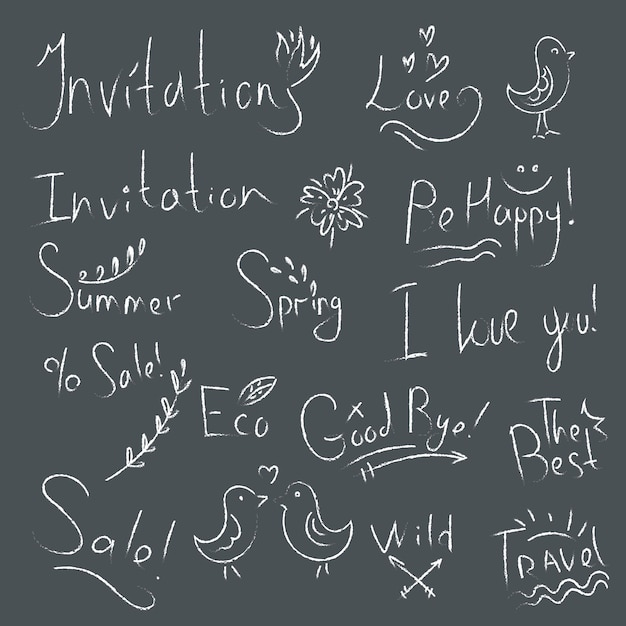 Invitation
Love
Invitation
Be Happy!
Summer
Spring
I love you!
% Sale!
Eco
Good Bye!
The
Best
Sale!
Wild
Travel